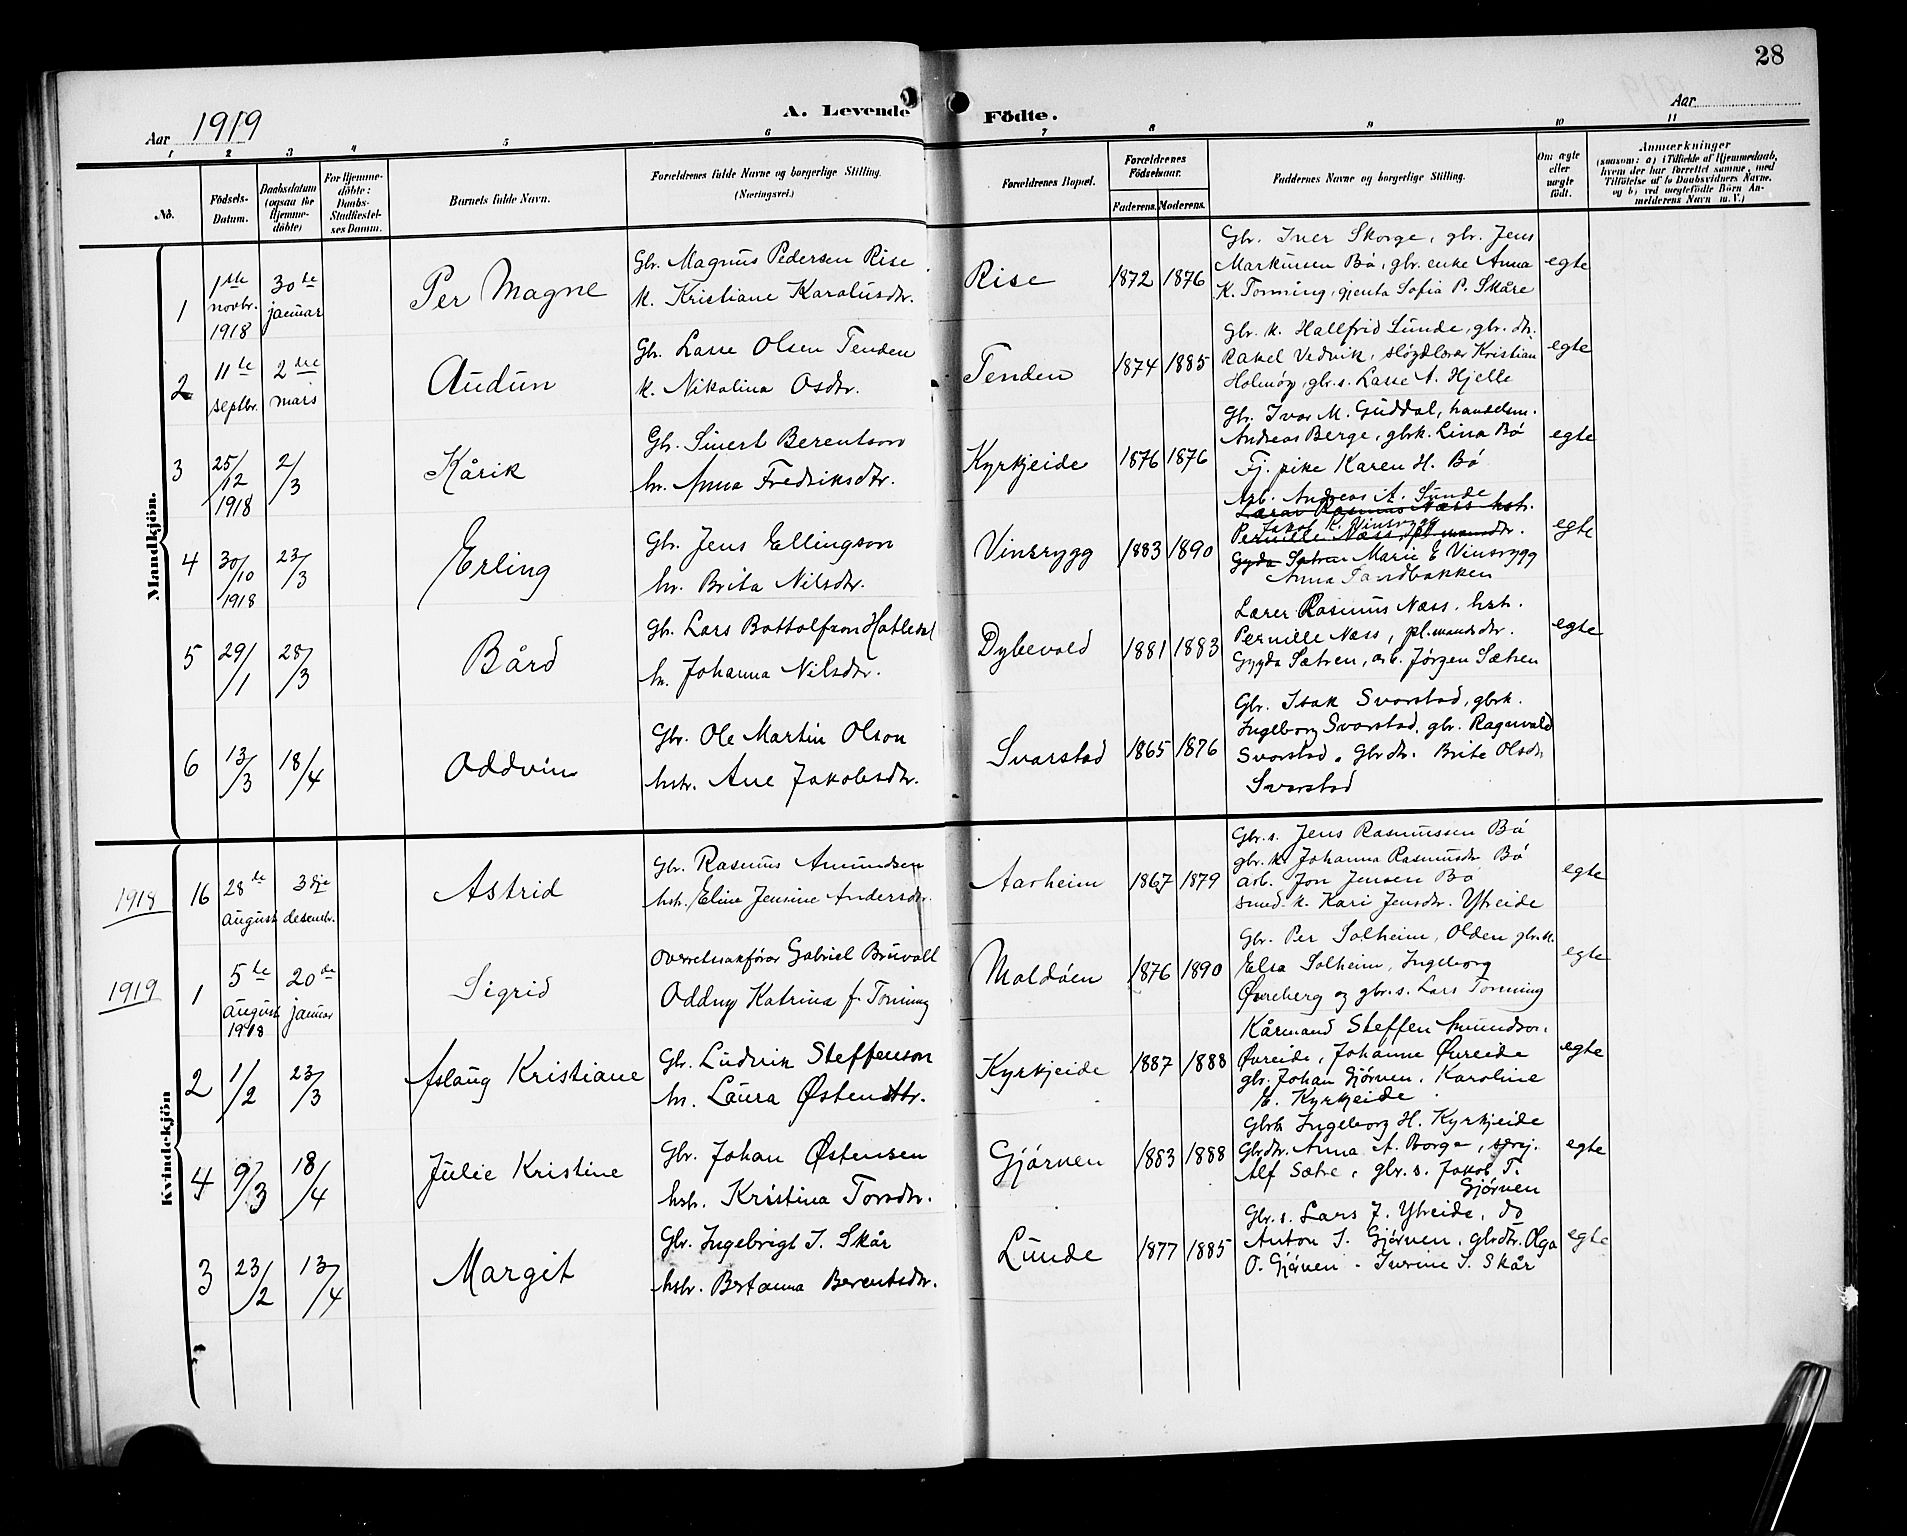 28
Aar 1919
A. Levende Födte.
Aar
1 2 3 4 5 6 7 8 9 10 11
No.
Födsels-
Datum.
Daabsdatum
(ogsaa for
Hjemme-
döbte)
For Hjemme-
döbte:
Daabs-
Stadfæstel-
ses Datum.
Barnets fulde Navn.
Forældrenes fulde Navne og borgerlige Stilling.
(Næringsvei.)
Forældrenes Bopæl.
Forældrenes
Födselsaar.
Faderens. Moderens.
Faddernes Navne og borgerlige Stilling.
Om ægte
eller
uægte
födt.
Anmærkninger
(saasom: a) i Tilfælde af Hjemmedaab,
hvem der har forrettet samme, med
Tilföielse af to Daabsvidners Navne,
og b) ved uægtefödte Börn An-
melderens Navn m. V.)
Mandkjön.
1
1ste novbr. 1918
30te januar
Per Magne
Gbr. Magnus Pedersen Rise
k. Kristiane Karolusdtr.
Rise
1872 1876
Gbr. Iver Skorge, gbr. Jens
Markussen Bö, gbr. enke Anna
K. Tonning, gjenta Sofia P. Skåre
egte
2
11te septbr.
2dre mars
Audun
Gbr. Lasse Olsen Tenden
k. Nikolina Osdtr.
Tenden
1874 1885
Gbr. k. Hallfrid Sunde, gbr. dtr.
Rakel Vedvik, slöydlærer Kristian
Holmöy, gbr. s. Lasse A. Hjelle
egte
3
25/12 1918
2/3
Kårik
Gbr. Sivert Berentson
hu. Anna Fredriksdtr.
Kyrkjeide
1876 1876
Gbr. Ivar M. Guddal, handelsm.
Andreas Berge, gbrk. Lina Bö
Fj. pike Karen H. Bö
egte
4
30/10 1918
23/3
Erling
Gbr. Jens Ellingson
hu. Brita Nilsdtr.
Vinsrygg
1883 1890
Arb. Andreas A. Sunde
Lærar Rasmus Næss hstr.
Jakob K. Vinsrygg
Pernille Næss, pl. mandsdtr.
Gyda Sætren Marie E Vinsrygg
Anna Sandbakken
egte
5
29/1
28/3
Bård
Gbr. Lars Bottolfson Hatledal
hu. Johanna Nilsdtr.
Dybevold
1881 1883
Lærer Rasmus Næss, hstr.
Pernille Næss, pl.mandsdtr.
Gygda Sætren, arb. Jørgen Sætren
egte
6
13/3
18/4
Oddvin
Gbr. Ole Martin Olson
hstr. Ane Jakobsdtr.
Svarstad
1865 1876
Gbr. Isak Svarstad, gbrk.
Ingeborg Svarstad, gbr. Ragnvald
Svarstad, Gbrdtr. Brite Olsdtr
Svarstad
Kvindekjön
1918
16
28de august
3dje desembr.
Astrid
Gbr. Rasmus Amundsen
hstr. Eline Jensine Andersdtr.
Aarheim
1867 1879
Gbr. s. Jens Rasmussen Bö
gbr. k. Johanna Rasmusdtr Bö
arb. Jon Jensen Bö
smed. k. Kari Jensdtr. Ytreide
egte
1919
1
5te august 1918
20de januar
Sigrid
Overretssakförar Gabriel Bruvoll
Oddny Katrina f. Tonning
Moldöen
1876 1890
Gbr. Per Solheim, Olden gbr. k.
Elsa Solheim, Ingeborg
Øvreberg og gbr. s. Lars Tonning
egte
2
1/2
23/3
Aslaug Kristiane
Gbr. Ludvik Steffenson
hu. Laura Østensdtr.
Kyrkjeide
1887 1888
Kårmand Steffen Amundson.
Øvreide, Johanne Øvreide
gbr. Johan Gjörven, Karoline
E. Kyrkjeide
egte
4
9/3
18/4
Julie Kristine
Gbr. Johan Østensen
hstr. Kristina Torsdtr.
Gjörven
1883 1888
Gbrk Ingeborg H. Kyrkjeide
Gbrdtr. Anna A. Borge, sersj.
Alf Sætre, gbr. s. Jakob T.
Gjörven
egte
3
23/2
13/4
Margit
Gbr. Ingebrigt J. Skår
hstr. Bertanna Berentsdtr.
Lunde
1877 1885
Gbr. s. Lars J. Ytreide, do
Anton J. Gjörven, gbrdtr. Olga
O. Gjörven - Jurine J. Skår
egte